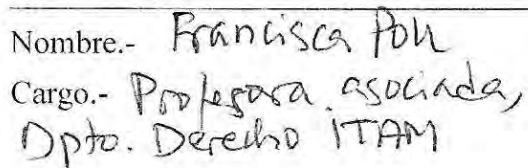 Nombre.- Francisca Pou
Cargo.- Profesora asociada,
Dpto. Derecho ITAM